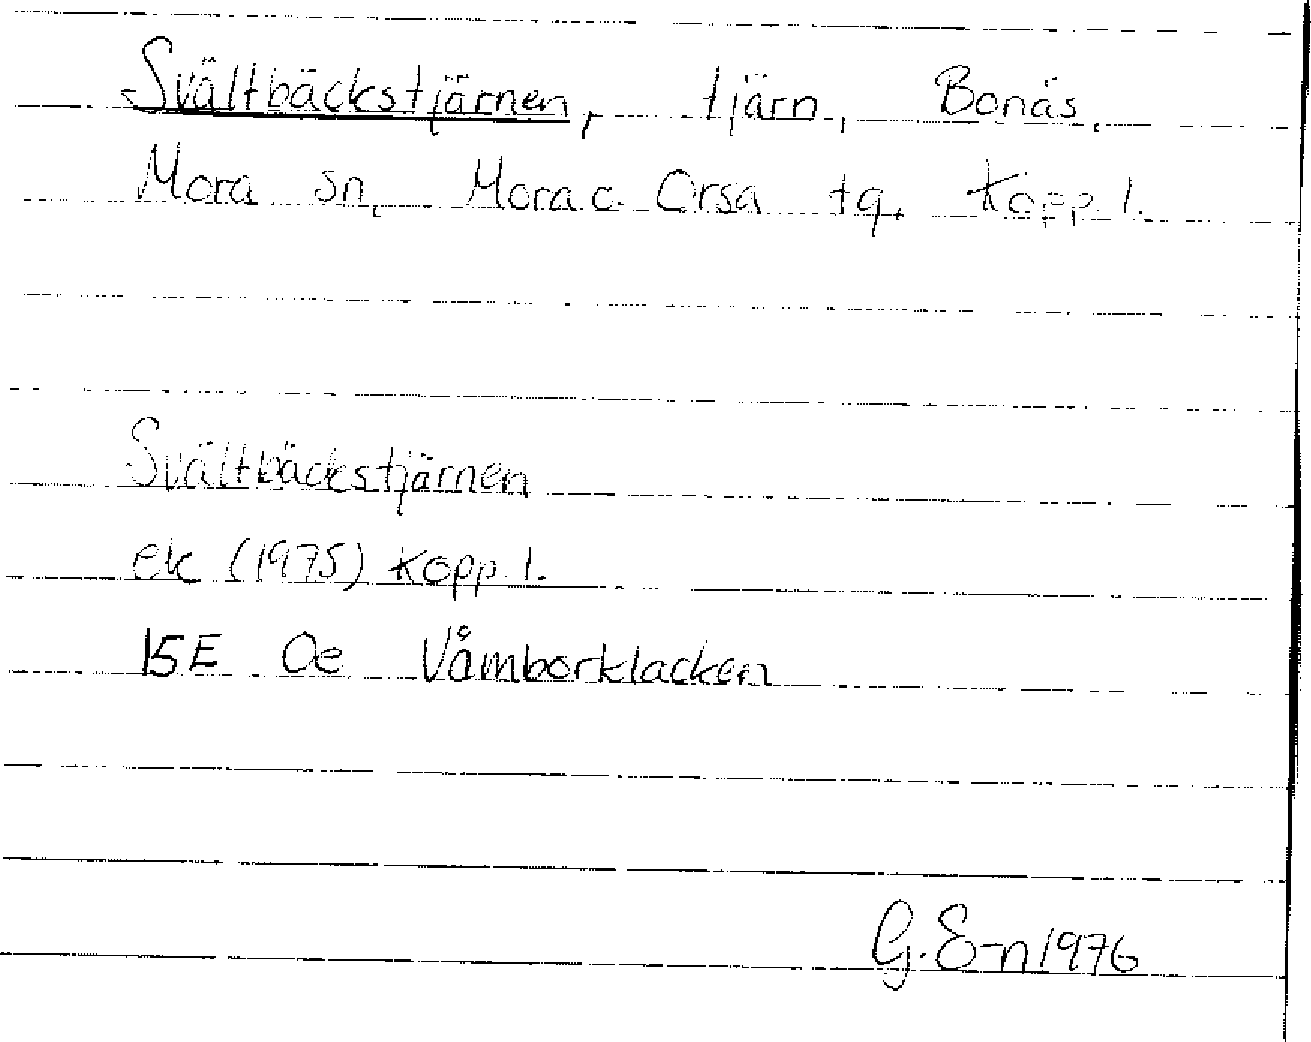 Svältbäckstjärnen, tjärn, Bonäs,
Mora sn, Mora o. Orsa tg, Kopp. l.
Svältbäckstjärnen
ek (1975) Kopp. l.
15E 0e Våmborklacken
G. E-n 1976